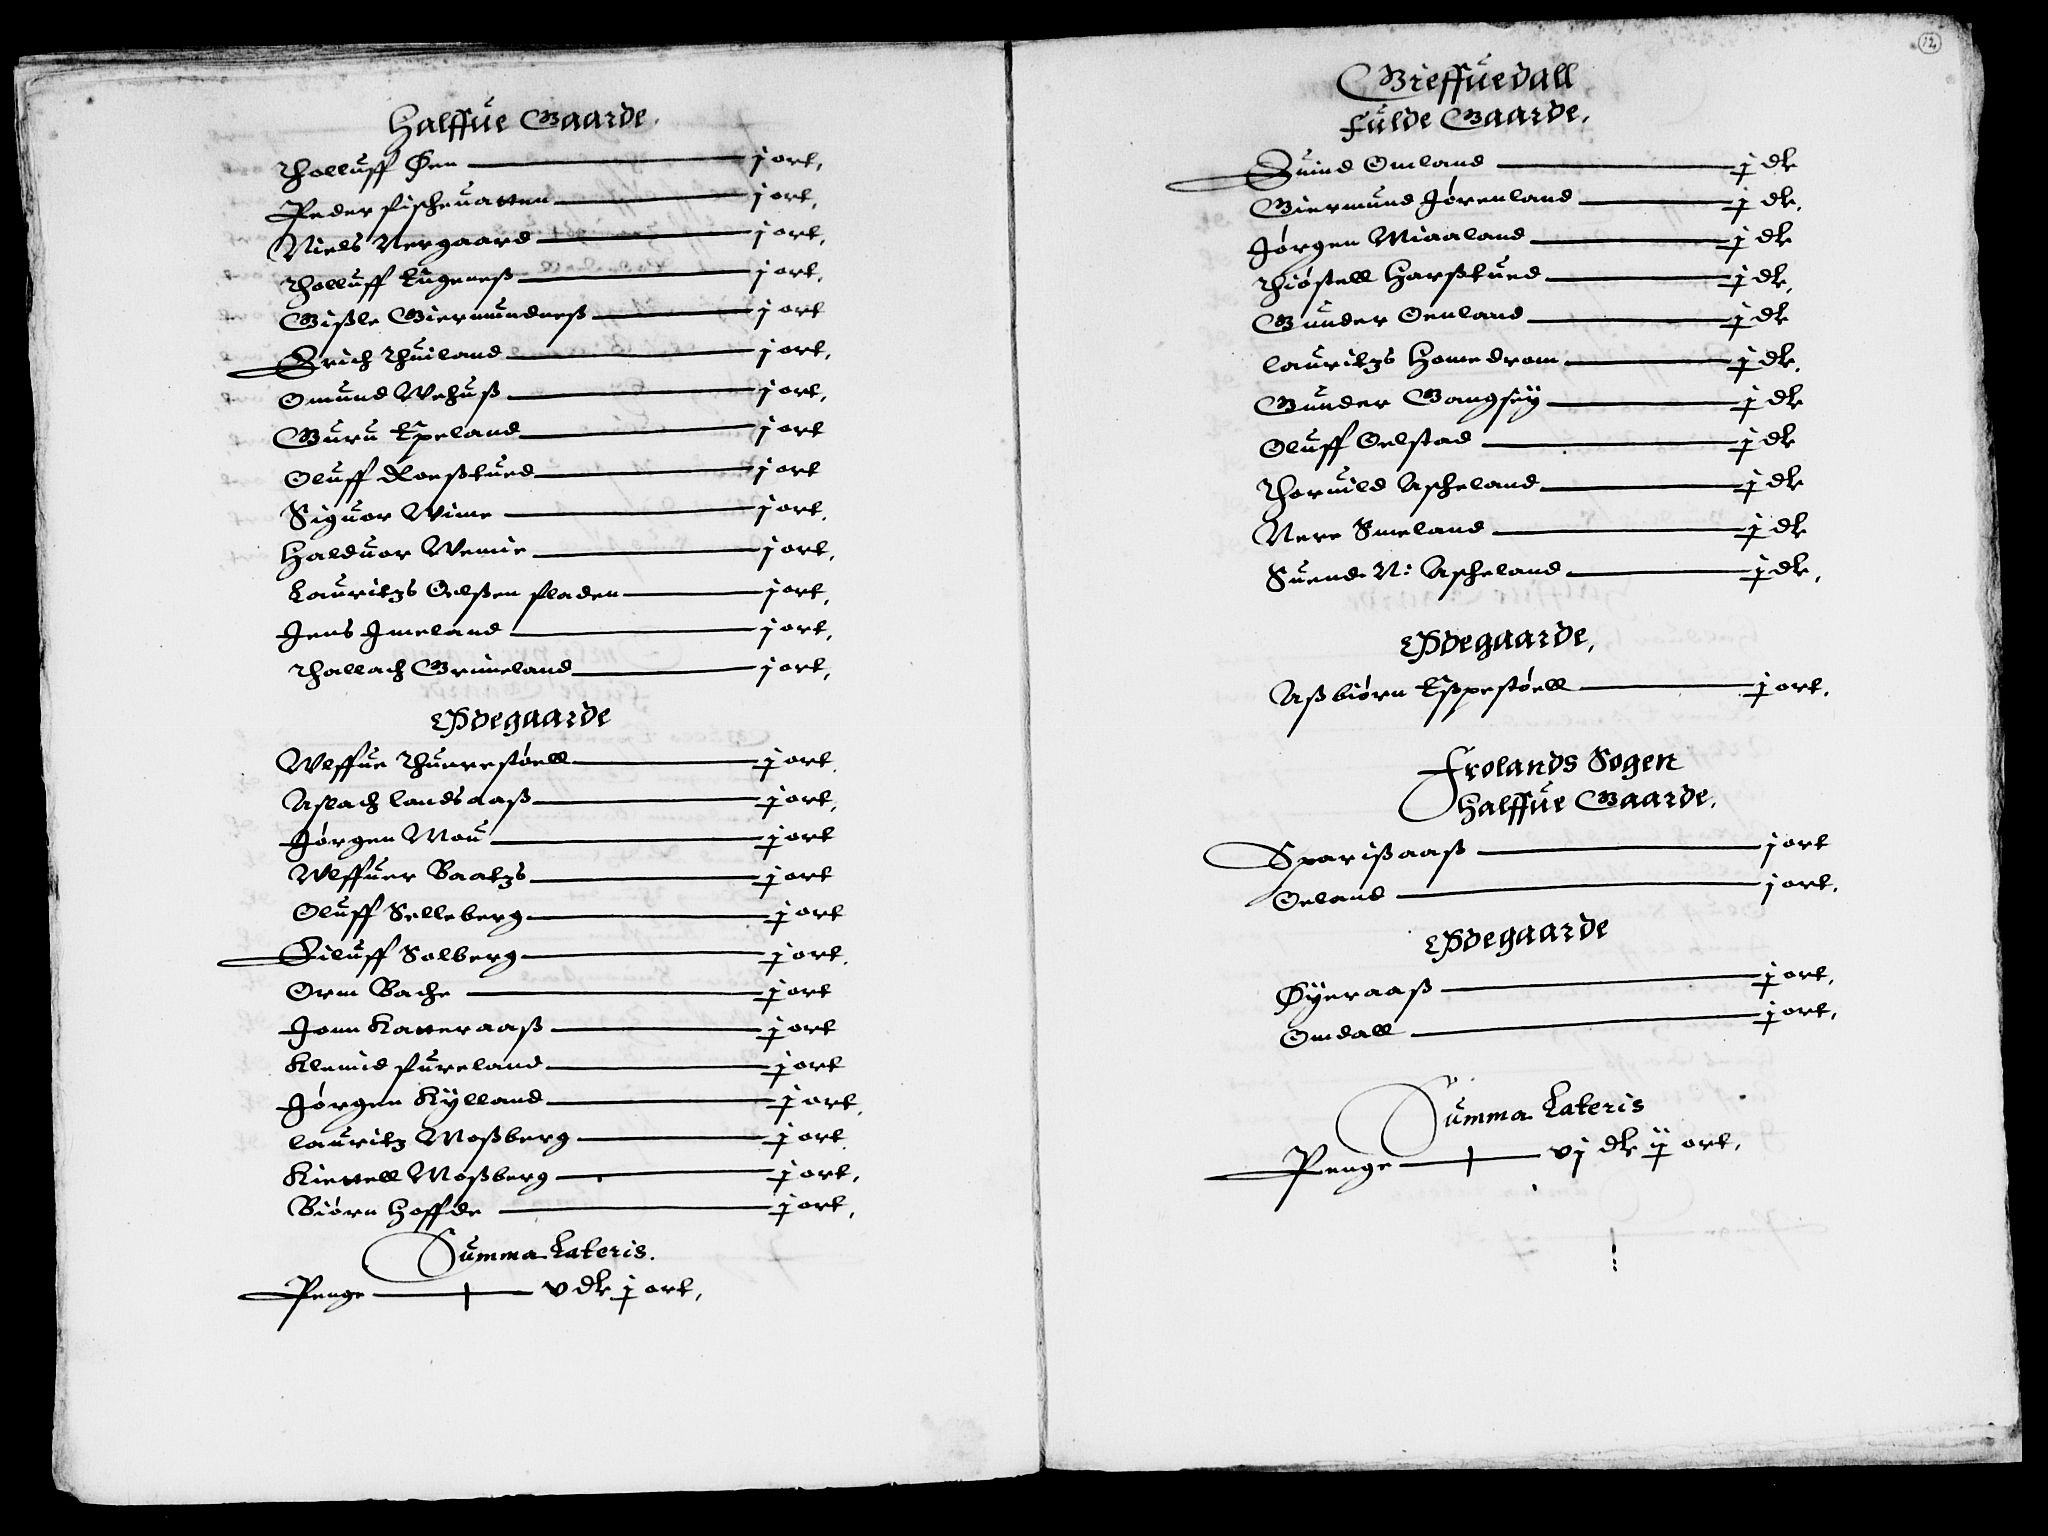 Halffue Gaarde.
Tholluff Øen — j ort,
Peder fischeuatten — j ort,
Niels Nergaard — j ort,
Tholluff Lugeneß — j ort,
Gißle Giermundneß — j ort
Erich Thuiland — j ort,
Omund Vehuß — j ort,
Guru Epeland — j ort
Oluff Roeßtued — j ort
Siguor Wime — j ort,
Halduor Wemie — j ort,
Lauritzs Oelßen fladen — j ort,
Jens Imeland — j ort,
Thallach Grimeland — j ort,
Ødegaarde
Wlffue Thuerestøell — j ort,
Aslach landsaaß — j ort,
Jørgen Mou — j ort
Wlffuer Baatzs — j ort
Oluff Selleberg — j ort
Eiluff Solberg — j ort,
Orm Bache — j ort
Jonn Katteraaß — j ort
Klemid fureland — j ort
Jørgen Kÿlland — j ort,
lauritz Moßberg — j ort
Kiettell Moßberg — j ort,
Biørn Hoffde — j ort,
Summa Lateris.
Penge — v dr j ort,
12
Gieffuedall
Fulde Gaarde,
Euind Omland — j dr
Giermund Jørenland — j dr,
Jørgen Miaaland — j dr
Thiøstell Harßtued — j dr,
Gunder Oenland — j dr
lauritzs Homedrom — j dr,
Gunder Gangsÿ — j dr
Oluff Oelstad — j dr
Thoruild Ascheland — j dr
Nere Smeland — j dr
Suend N: Ascheland — j dr,
Ødegaarde,
Aßbiørn Eßpestøell — j ort,
Frolands Sogen
Halffue Gaarde,
Sparißaaß — j ort
Oeland — j ort,
Ødegaarde
Øÿeraaß — j ort,
Omdall — j ort,
Summa Lateris
Penge — vj dr ij ort,